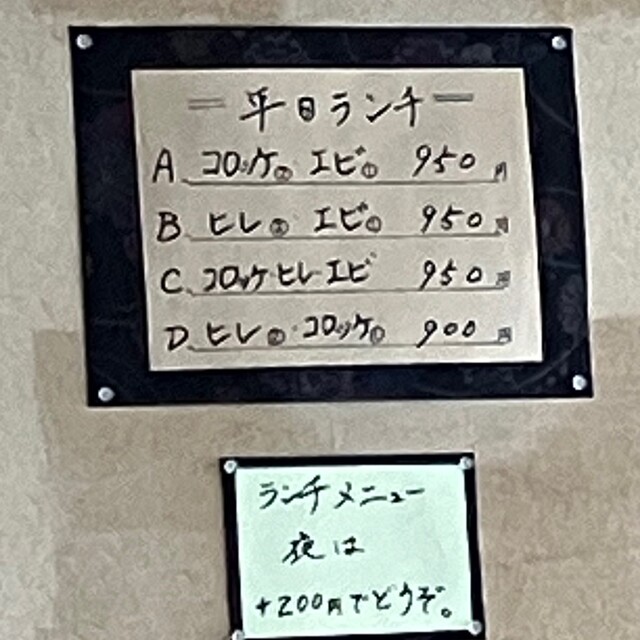 ＝平日ランチ＝
A コロッケ② エビ① 950円
B ヒレ② エビ① 950円
C コロッケ ヒレ エビ 950円
D ヒレ② コロッケ① 900円
ランチメニュー
夜は
+200円でどうぞ。